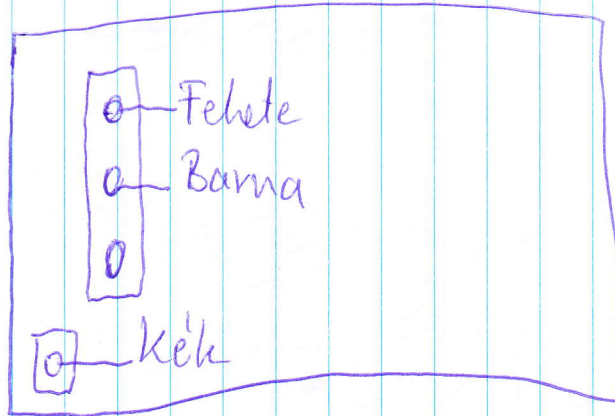 Fekete
Barna
Kék